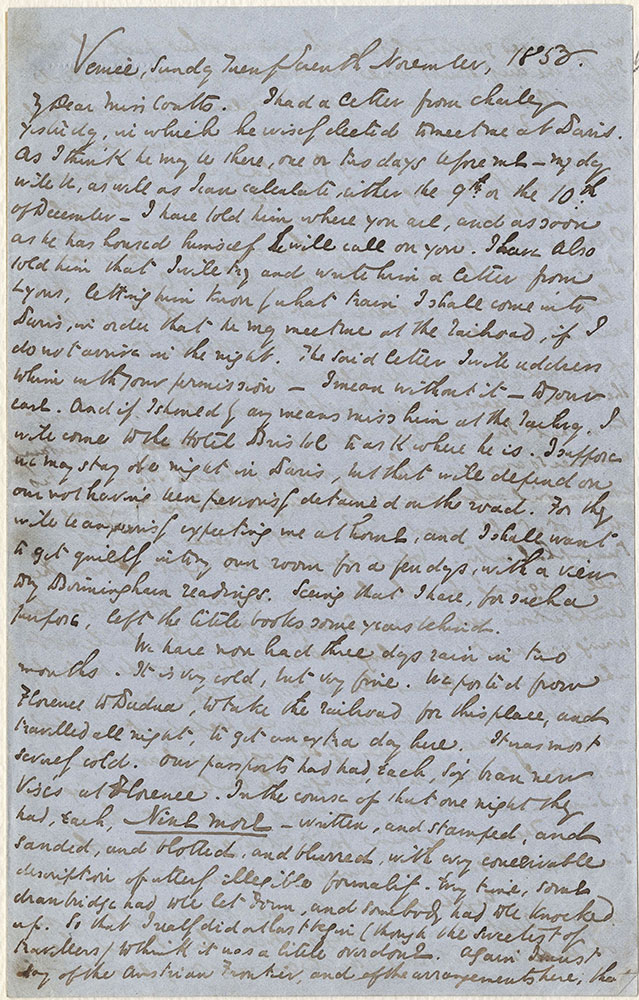 Venice, Sunday Twenty Seventh November, 1853.
My Dear Miss Coutts. I had a letter from Charley
yesterday, in which he wisely elected to meet me at Paris.
As I think he may be there, one or two days before me – my day
will be, as well as I can calculate, either the 9th or the 10th
of December – I have told him where you are, and as soon
as he has housed himself he will call on you. I have also
told him that I will try and write him a letter from
Lyons, letting him know by what train I shall come into
Paris, in order that he may meet me at the railroad, if I
do not arrive in the night. The said letter I will address
to him with your permission – I mean without it – to your
care. And if I should by any means miss him at the railway, I
will come to the Hotel Bristol to ask where he is. I suppose
we may stay one night in Paris, but that will depend on
our not having been previously detained on the road. For they
will be anxiously expecting me at home, and I shall want
to get quietly into my own room for a few days, with a view
to my Birmingham readings. Seeing that I have, for such a
purpose, left the little books some years behind.
We have now had three days rain in two
months. It is very cold, but very fine. We posted from
Florence to Padua, to take the railroad for this place, and
travelled all night, to get an extra day here. It was most
severely cold. Our passports had had each, six bran new
Visés at Florence. In the course of that one night they
had, each, Nine more – written, and stamped, and
sanded, and blotted, and blurred, with every conceivable
description of utterly illegible formality. Every time, some
drawbridge had to be let down, and somebody had to be knocked
up. So that I really did at last begin (though the sweetest of
travellers) to think it was a little overdone. Again I must
say of the Austrian Frontier, and of the arrangements here, that